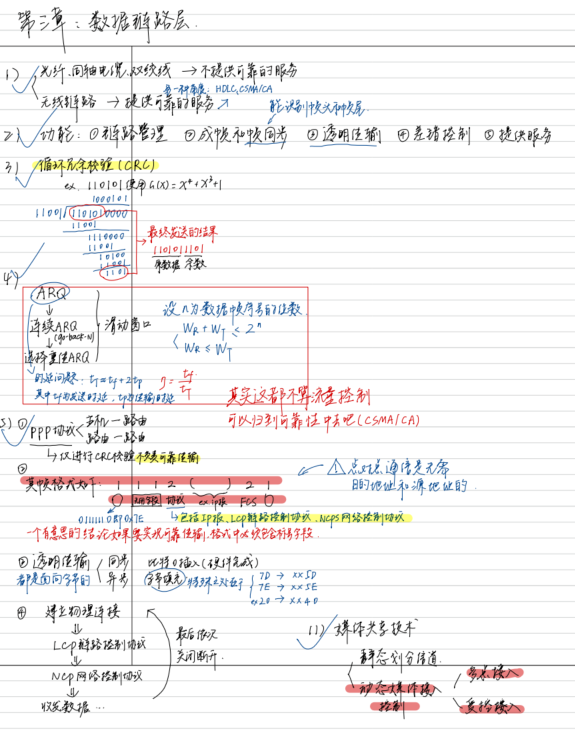 第三章：数据链路层.
1) 光纤.同轴电缆.双绞线 → 不提供可靠的服务
另一种角度：HDLC, CSMA/CA
无线链路 → 提供可靠的服务
能识别帧头和帧尾.
2) 功能：①链路管理 ②成帧和帧同步 ③透明传输 ④差错控制 ⑤提供服务
3) 循环冗余校验(CRC)
ex. 110101 使用 G(X) = X⁴+X³+1
1000101
11001 1101010000
11001
1110000
11001
10100
11001
1101
最终发送的结果
110101 1101
原数据 余数
4)
ARQ
连续ARQ
(go-back-N)
选择重传ARQ
滑动窗口
设n为数据中帧序号的位数
WR + WT ≤ 2ⁿ
WR ≤ WT
时延问题：tT = tf + 2tp
η = tf/tT
其中tf为发送时延，tp为传输时延
其实这都不算流量控制
可以归到可靠性中去吧(CSMA/CA)
5) ① PPP协议
主机 — 路由
路由 — 路由
↳ 仅进行CRC校验 不实走可靠传输
②
其帧格式如下： 1 1 1 2 ( ) 2 1
协议 ex ip报 FCS
01111110即0x7E
↳ 包括IP报, LCP链路控制协议, NCPS网络控制协议
⚠ 点对点通信是无需
目的地址和源地址的.
一个有意思的结论 如果要实现可靠传输.格式中必须包含序号字段.
③ 透明传输
都是面向字节的
同步 比特0插入(硬件完成)
异步 字节填充 特殊定义在于
7D → xx 5D
7E → xx 5E
ex 20 → xx 40
④ 建立物理连接
⇓
LCP链路控制协议
⇓
NCP网络控制协议
⇓
收发数据 ...
最后依次
关闭断开.
11) 媒体共享技术
静态划分信道
动态媒体接入
控制
多点接入